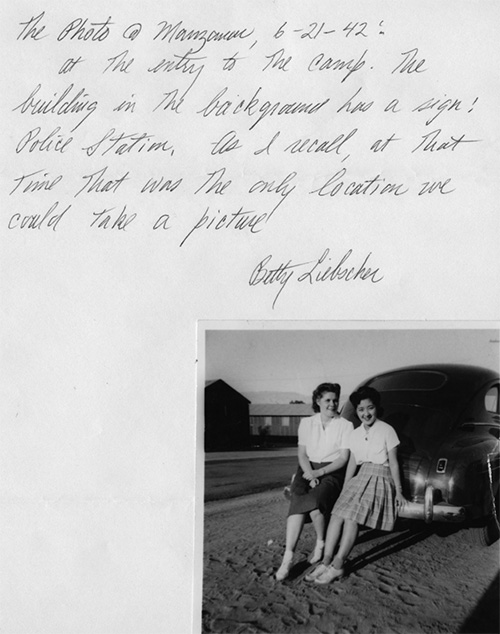 The Photo @ Manzanar, 6-21-42:
at the entry to the camp. The
building in the background has a sign:
Police Station. As I recall, at that
time, that was the only location we
could take a picture
Betty Liebscher